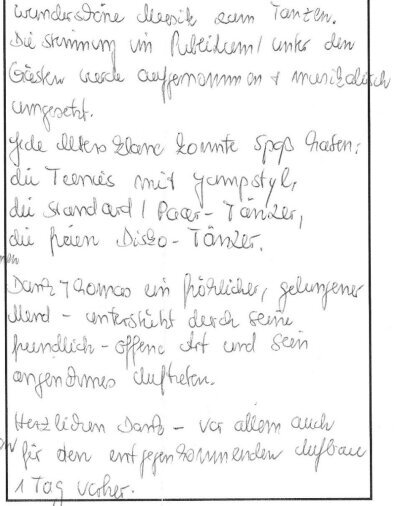 wunderschöne Musik zum Tanzen.
Die Stimmung im Publikum / unter den
Gästen wurde aufgenommen + musikalisch
umgesetzt.
Jede Altersklasse konnte Spaß haben:
die Teenies mit Jumpstyle,
die Standard / Paar-Tänzer,
die freien Disko-Tänzer.
Dank Thomas ein fröhlicher, gelungener
Abend - unterstützt durch seine
freundlich-offene Art und sein
angenehmes Auftreten.
Herzlichen Dank - vor allem auch
für den entgegenkommenden Aufbau
1 Tag vorher.